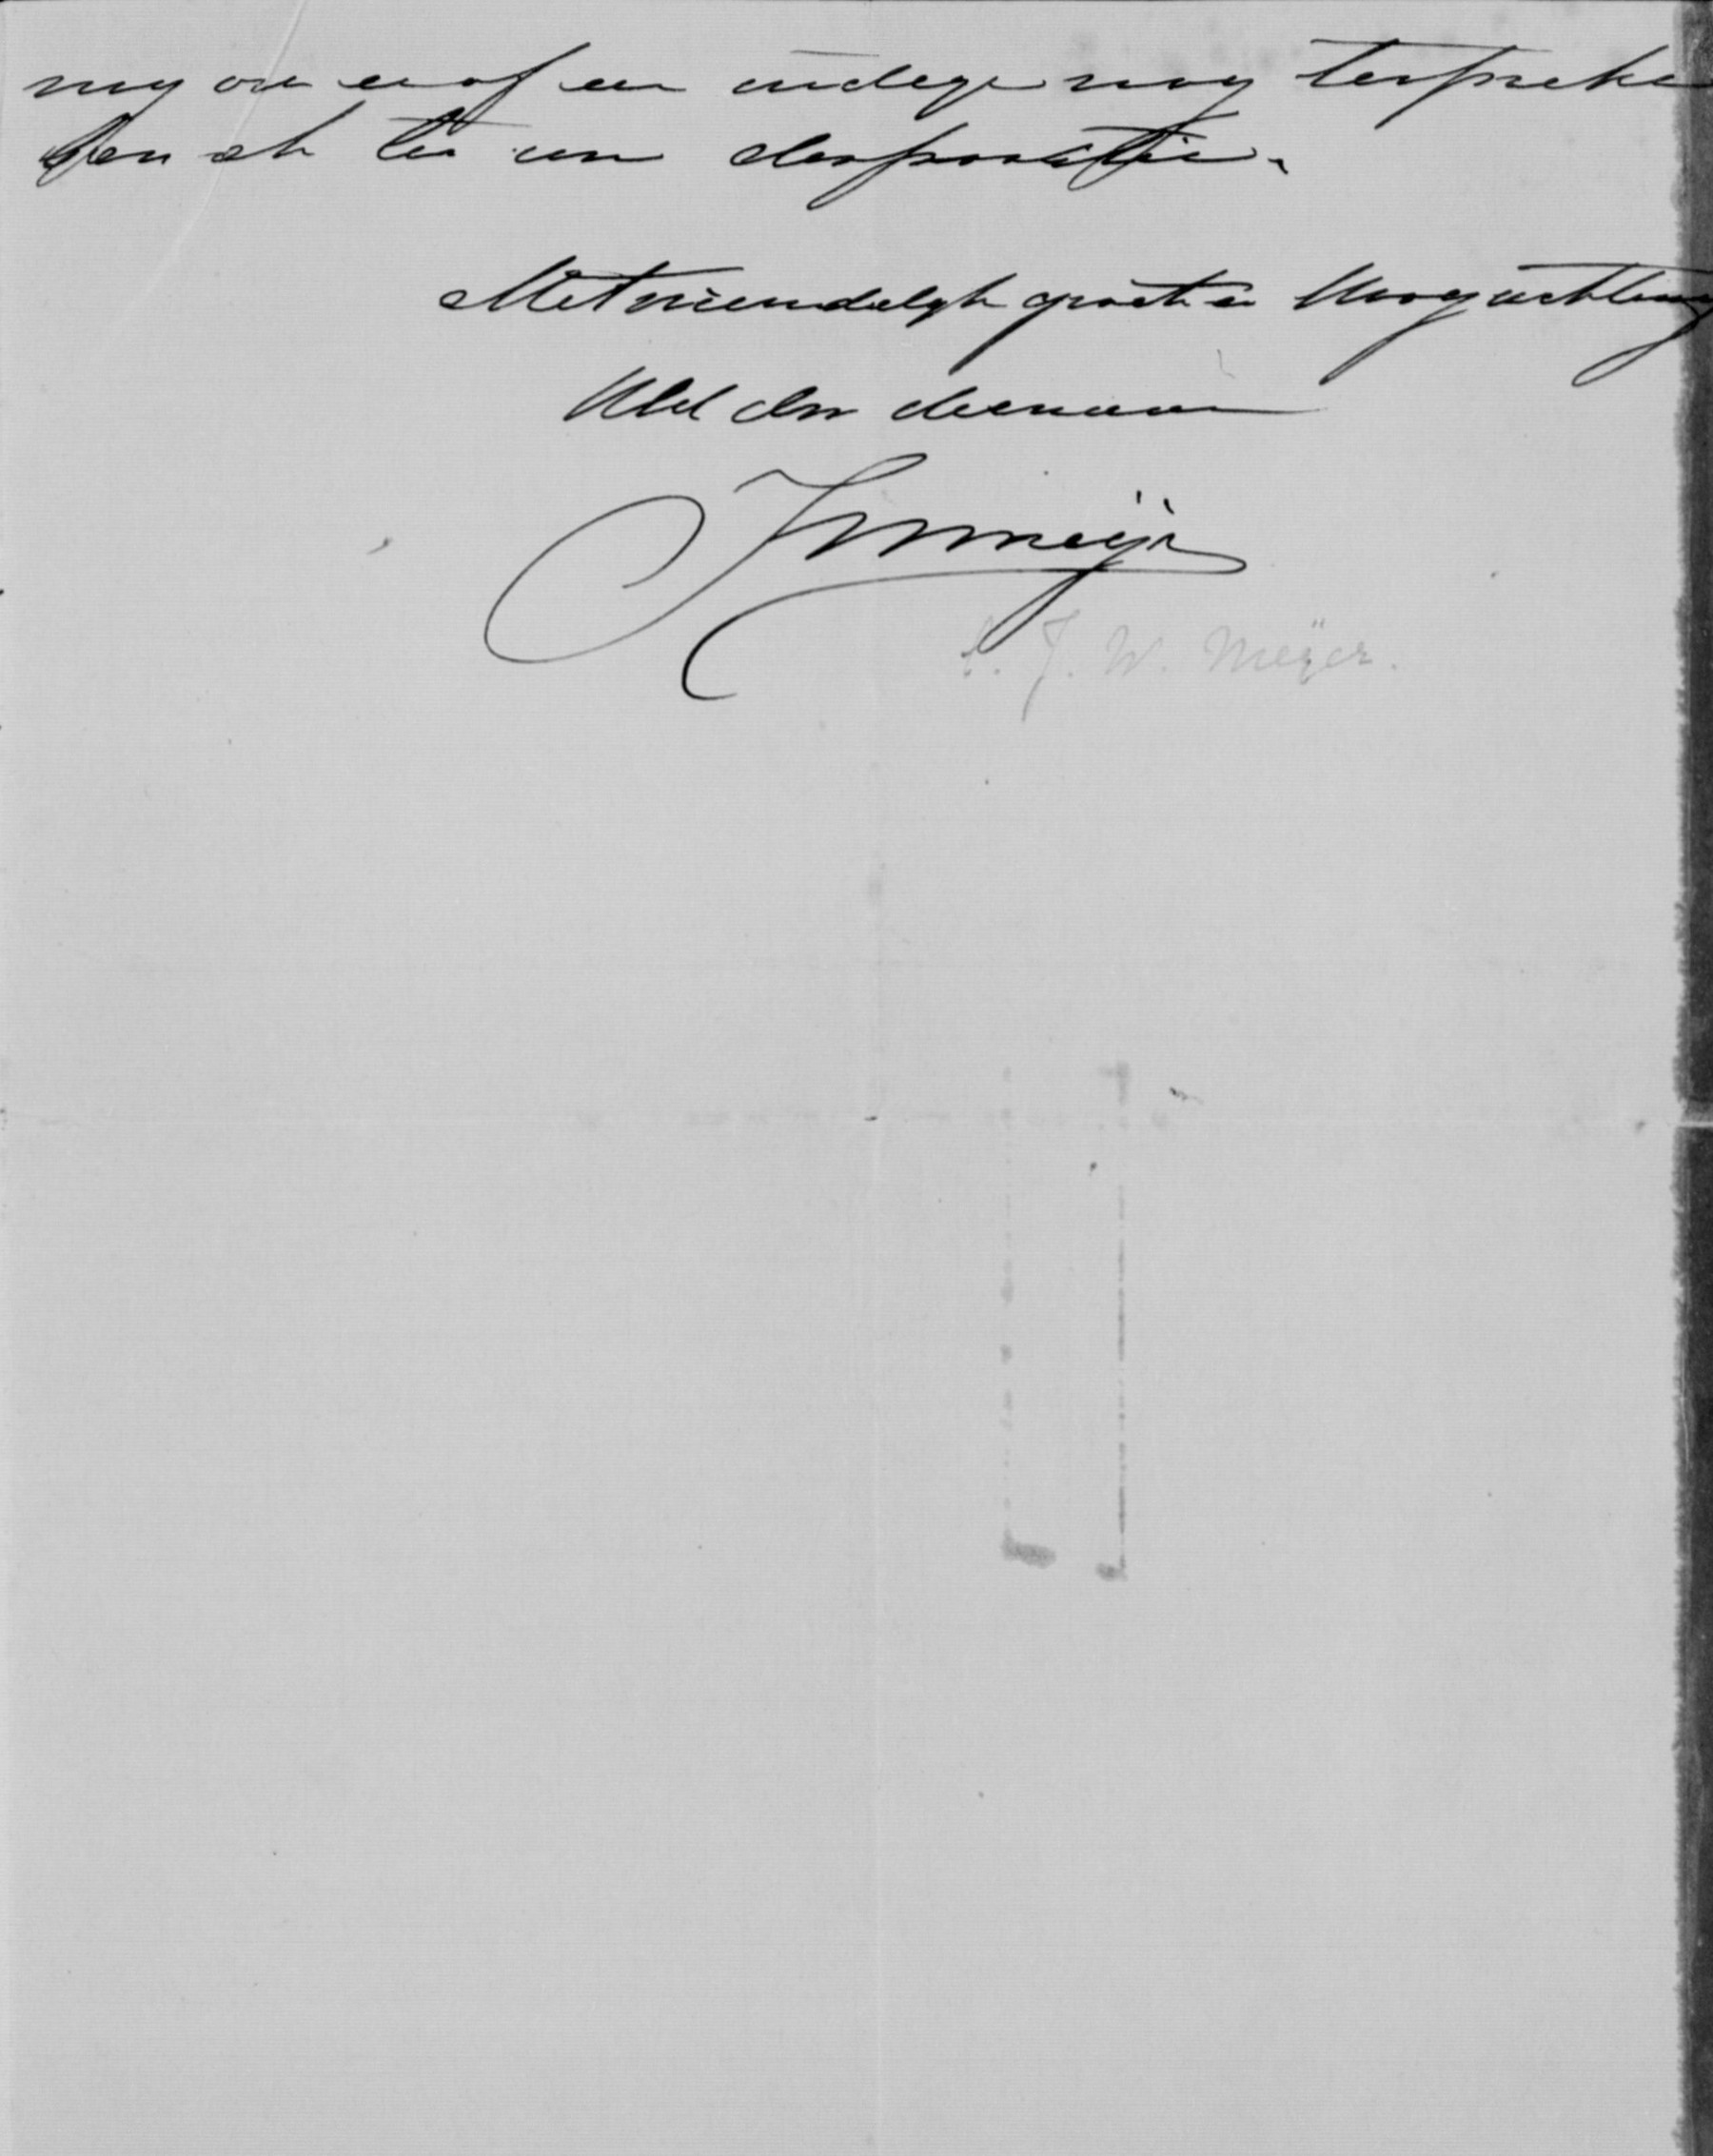 my over een of een ander nog te spreken
ben ik tot uw dispositie.
Met vriendelijk groet en Hoogachting
UEd dw dienaar
JWMeijer
J. W. Meijer.